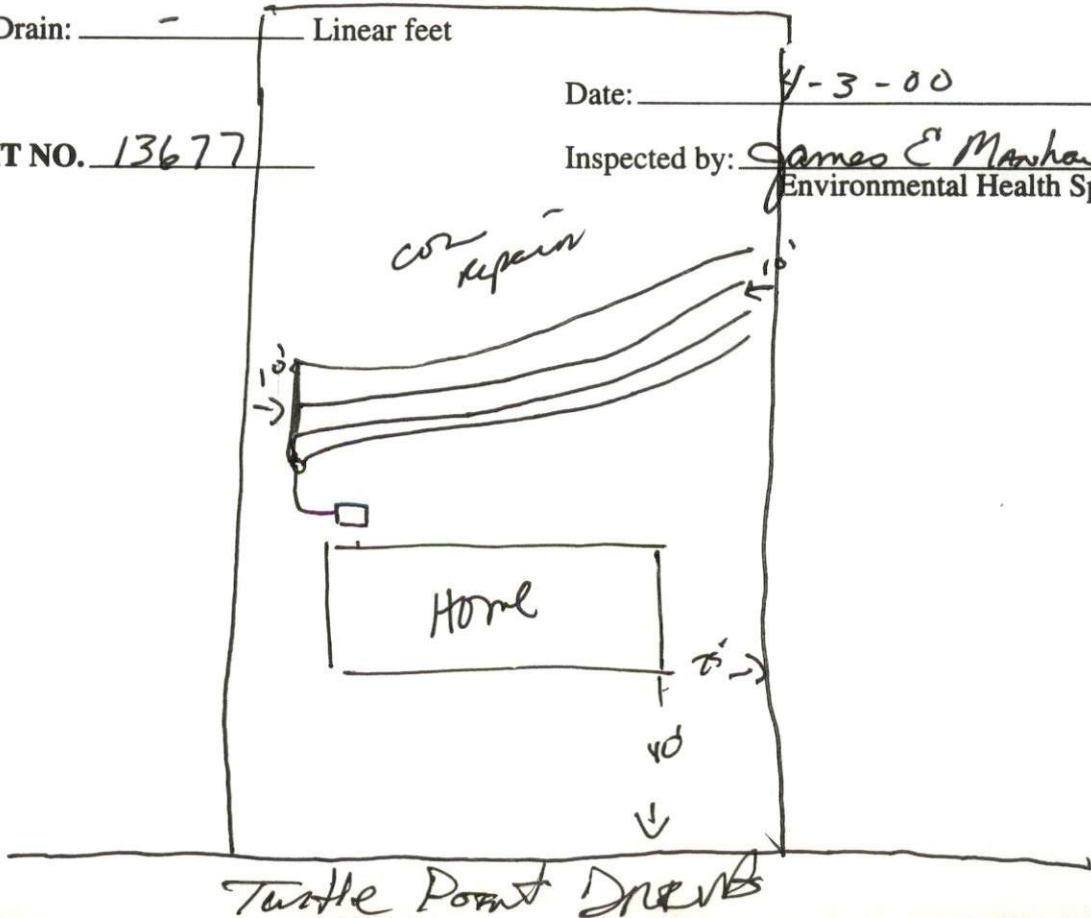 Drain: - Linear feet
Date: 4-3-00
T NO. 13677
Inspected by: James E
Environmental Health Sp
repair
10'
10'
Home
40'
Turtle Point